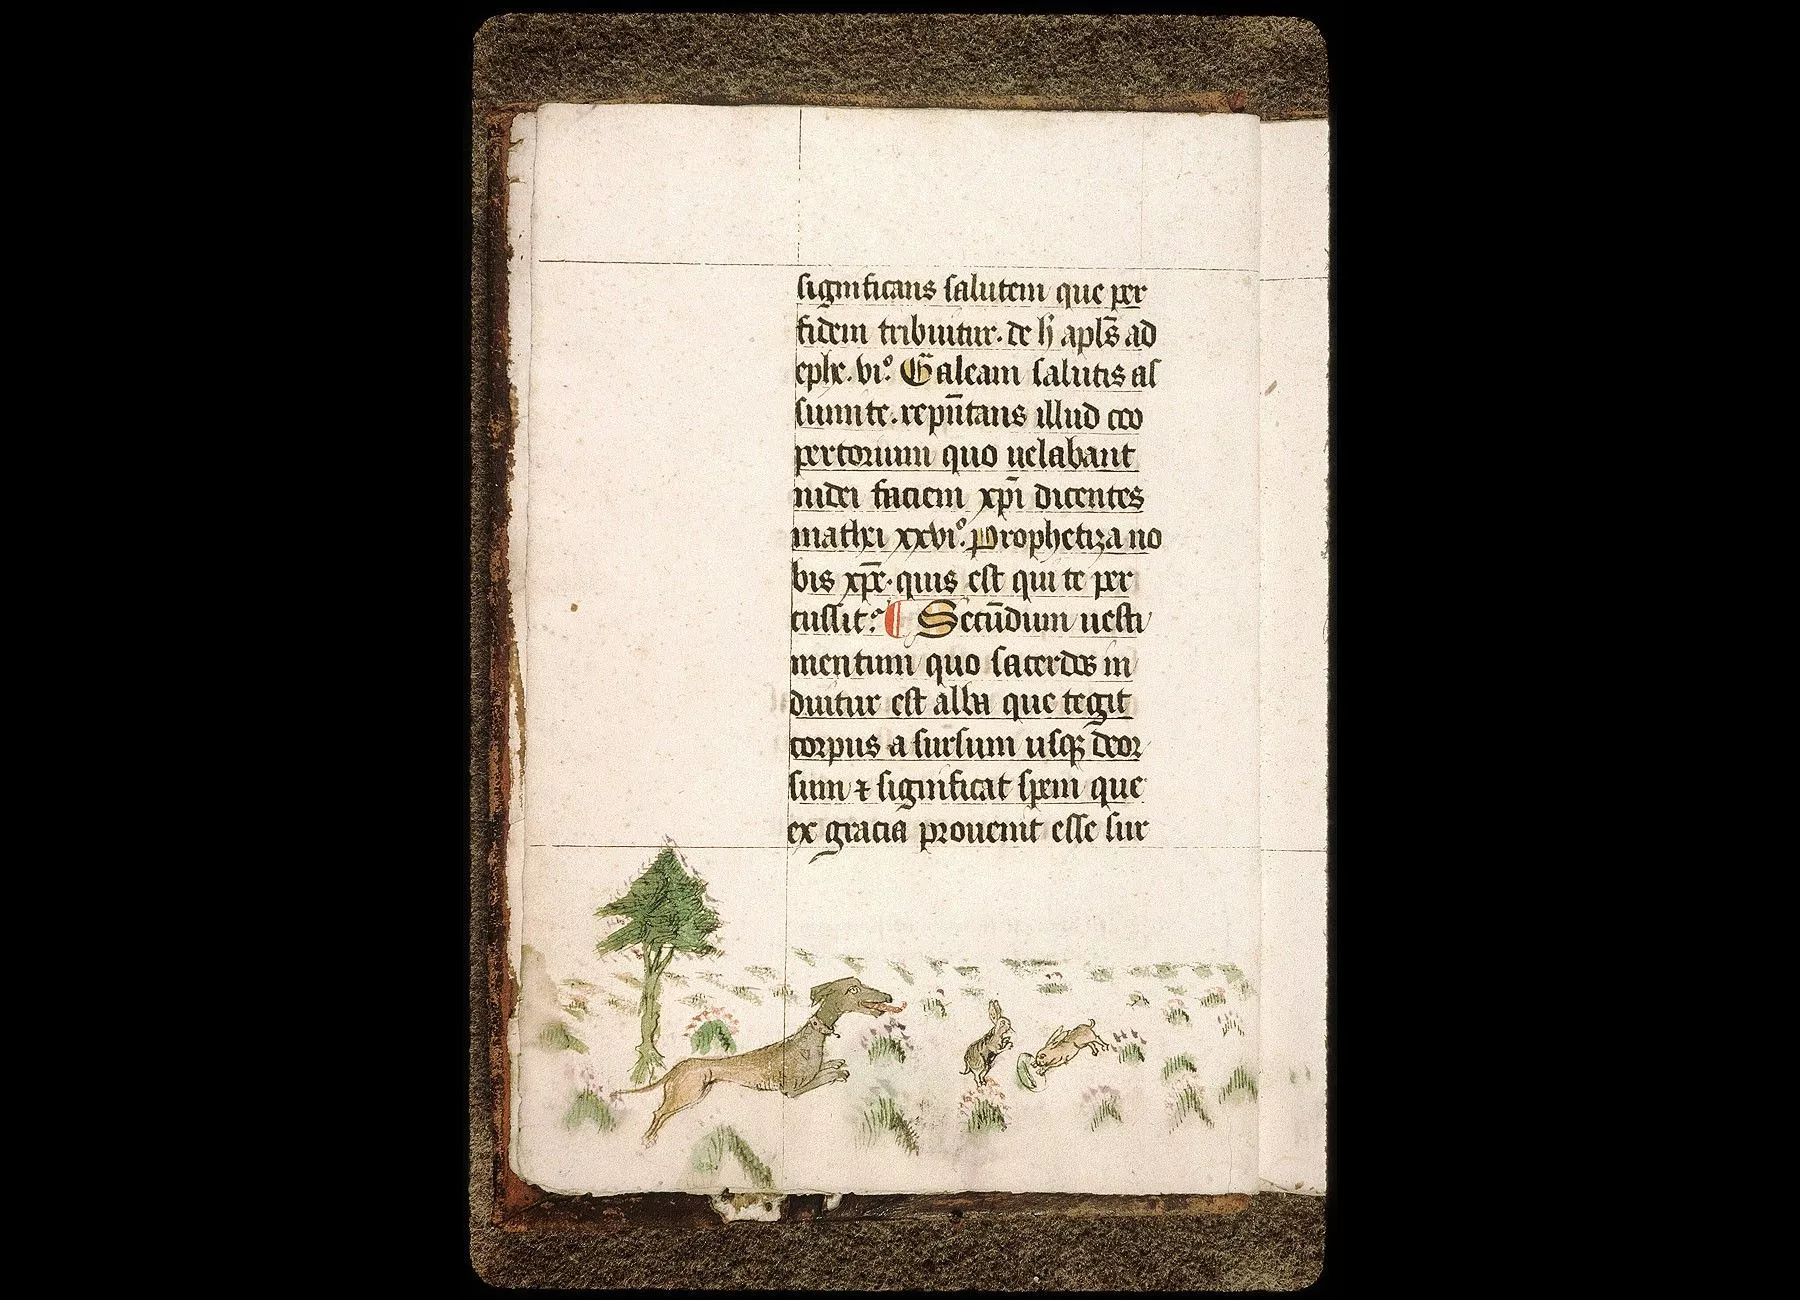 significans salutem que per
fidem tribuitur. de h̄ apl̄s ad
ephe. vi⁰. Galeam salutis as
sumite. rep̄n̄tans illud coo
pertorium quo uelabant
iudei faciem xp̄i dicentes
mathei xxvi⁰. Prophetiza no
bis xp̄e. quis est qui te per
cussit? ¶ Secūdum uesti
mentum quo sacerdos in
duitur est alba que tegit
corpus a sursum usqꝫ deor
sum ⁊ significat spem que
ex gracia prouenit esse sur